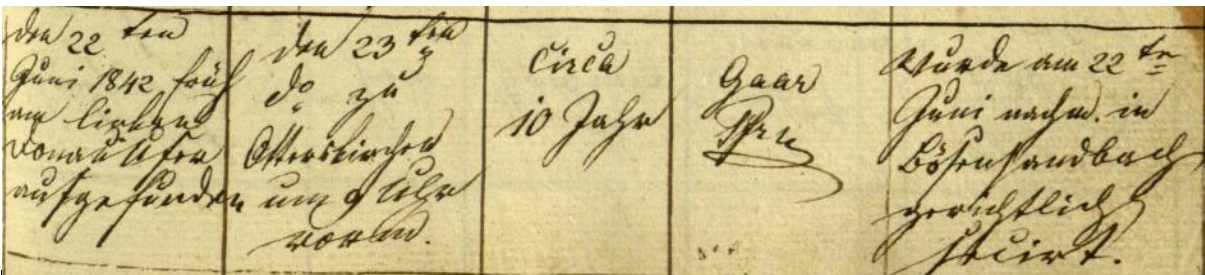 den 22 ten
Juni 1842 früh
am linken
Donau Ufer
aufgefunden
den 23 ten
do zu
Otterskirchen
um 9 Uhr
vorm.
Circa
10 Jahr
Gaar
Wurde am 22 te
Juni nachm. in
Bösensandbach
gerichtlich
secirt.